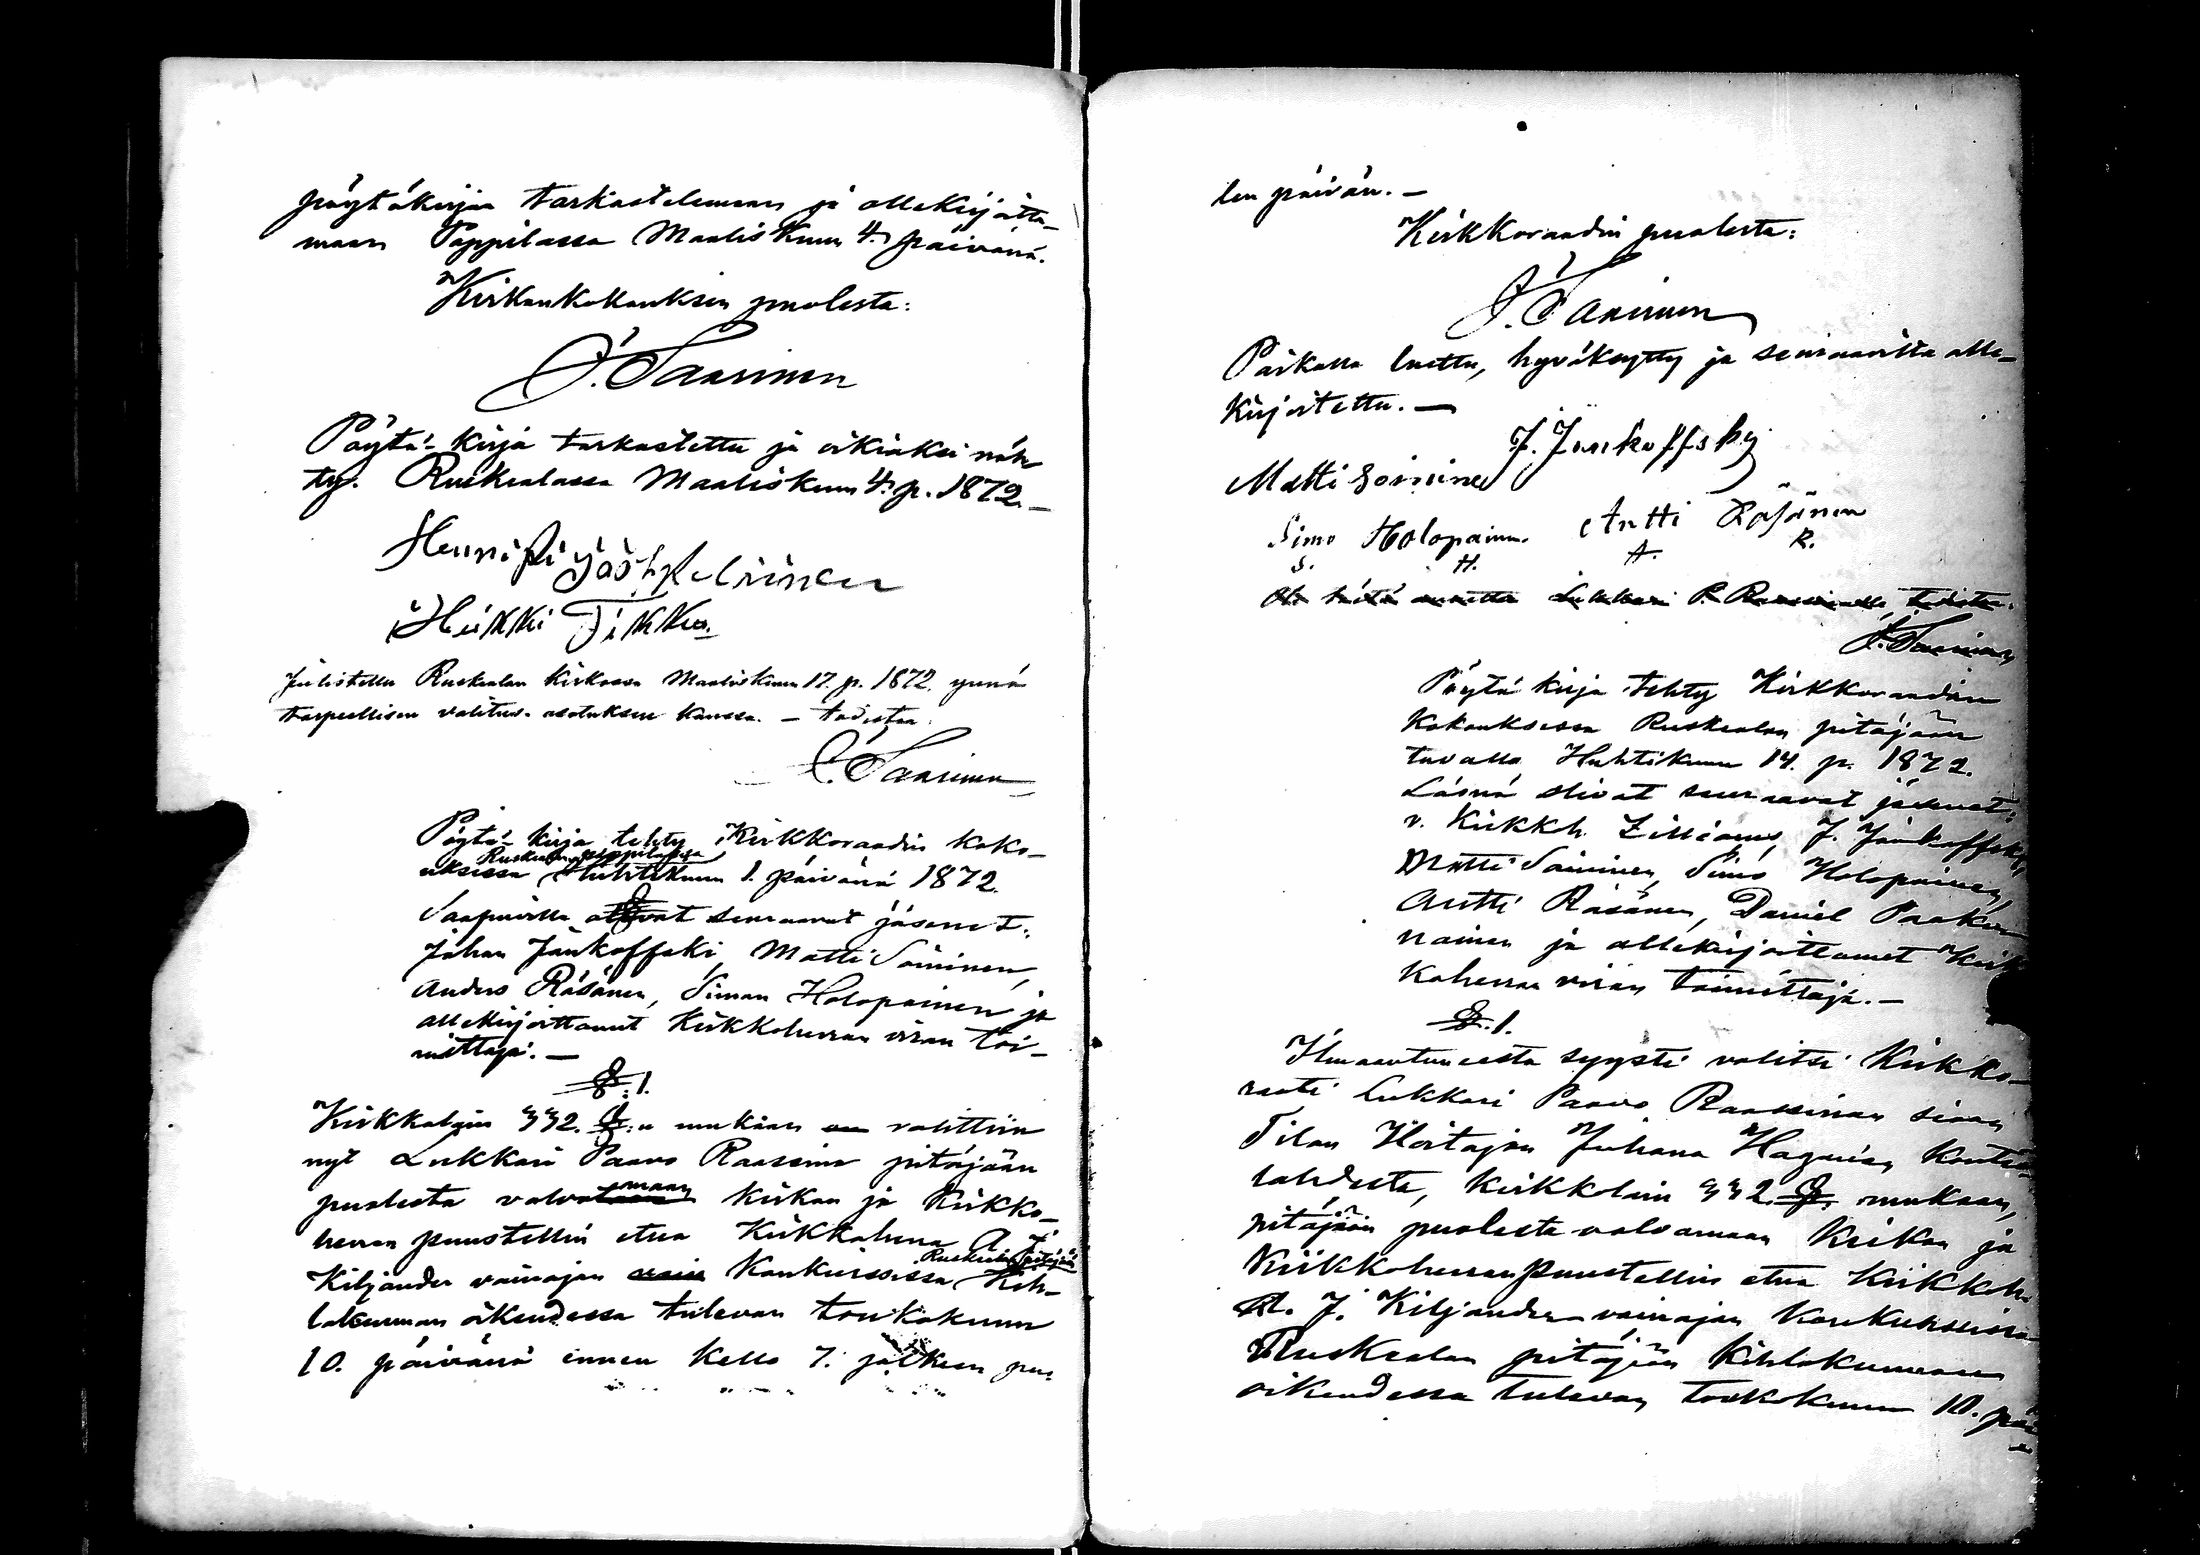 pöytäkirjaa tarkastelemaan ja allekirjoitta-
maan Pappilassa Maaliskuun 4. päivänä.
Kirkonkokouksen puolesta:
J. Saarinen
Pöytä-kirja tarkastettu ja oikiaksi näh-
ty. Ruskealassa Maaliskuun 4. p. 1872.-
Henriki Jäskeläinen
Heikki Tikka.
Julistettu Ruskealan kirkossa Maaliskuun 17. p. 1872. ynnä
tarpeellisen valitus-osotuksen kanssa. - todistaa
J. Saarinen
Pöytä-kirja tehty Kirkkoraadin koko-
uksessa Ruskealan pappilassa Huhtikuun 1. päivänä 1872.
Saapuvilla olivat seuraavat jäsenet:
Johan Jänkoffski, Matti Soininen,
Anders Räsänen, Siman Holopainen ja
allekirjoittanut Kirkkoherran viran toi-
mittaja. -
§. 1.
Kirkkolain 332. §:n mukaan valittiin
nyt Lukkari Paavo Raassina pitäjään
puolesta valvomaan kirkon ja Kirkko-
herran puustellin etua Kirkkoherra A. J.
Kiljander vainajan konkurssissa Ruskealan pitäjään Kih-
lakunnan oikeudessa tulevan toukokuun
10. päivänä ennen kello 7. jälkeen puo-
len päivän. -
Kirkkoraadin puolesta:
J. Saarinen
Paikalla luettu, hyväksytty ja seuraavilta alle-
kirjoitettu. -
J. Jänkoffsky
Matti Soininen
Simo Holopainen. Antti Räsänen
S. H. A. R.
J. Saarinen
Pöytä kirja tehty Kirkkoraadin
kokouksessa Ruskealan pitäjään
tuvalla Huhtikuun 14. p. 1872.
Läsnä olivat seuraavat jäsenet:
v. Kirkkh. Zilliacus, J. Jänkoffski,
Matti Soininen, Simo Holopainen,
Antti Räsänen, Daniel Paakku-
nainen ja allekirjoittanut Kirk-
koherran viran toimittaja. -
§. 1.
Ilmaantuneesta syystä valitsi Kirkko-
raati Lukkari Paavo Raassinan sijaan
Tilan Hoitajan Juhana Hagmin
lahdesta, Kirkkolain 332. §. mukaan,
pitäjään puolesta valvomaan Kirkon ja
Kirkkoherranpuustellin etua Kirkkoh.
A. J. Kiljander vainajan konkurssissa
Ruskealan pitäjään Kihlakunnan
oikeudessa tulevan toukokuun 10. päi-